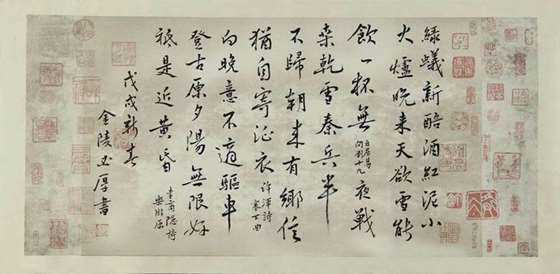 綠蟻新醅酒紅泥小
火爐晚來天欲雪能
飲一杯無 白居易 問劉十九 夜戰
桑乾雪秦兵半
不歸朝來有鄉信
猶自寄征衣 許渾詩 塞下曲
向晚意不適驅車
登古原夕陽無限好
祗是近黃昏 李商隱詩 樂遊原
戊戌新春
金陵 厚書